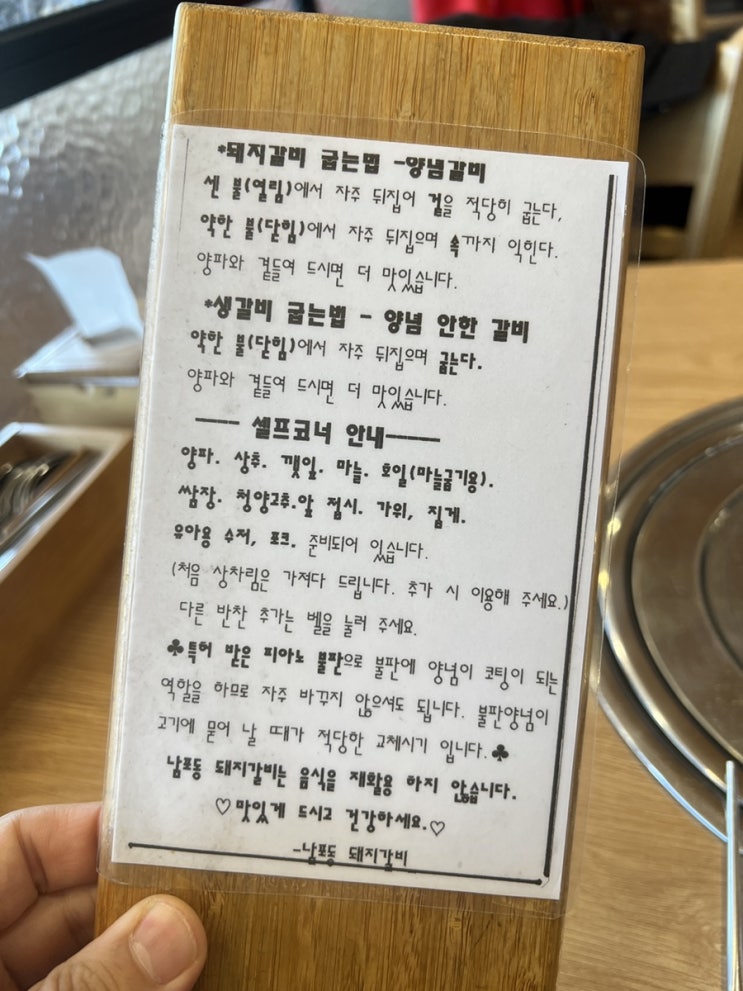 *돼지갈비 굽는법 -양념갈비
센 불(열림)에서 자주 뒤집어 겉을 적당히 굽는다,
약한 불(닫힘)에서 자주 뒤집으며 속까지 익힌다.
양파와 곁들여 드시면 더 맛있습니다.
*생갈비 굽는법 - 양념 안한 갈비
약한 불(닫힘)에서 자주 뒤집으며 굽는다.
양파와 곁들여 드시면 더 맛있습니다.
── 셀프코너 안내───
양파. 상추. 깻잎. 마늘. 호일(마늘굽기용).
쌈장. 청양고추.앞 접시. 가위, 집게.
유아용 수저, 포크. 준비되어 있습니다.
(처음 상차림은 가져다 드립니다. 추가 시 이용해 주세요.)
다른 반찬 추가는 벨을 눌러 주세요.
♣특허 받은 피아노 불판으로 불판에 양념이 코팅이 되는
역할을 하므로 자주 바꾸지 않으셔도 됩니다. 불판양념이
고기에 묻어 날 때가 적당한 교체시기 입니다.♣
남포동 돼지갈비는 음식을 재활용 하지 않습니다.
♡맛있게 드시고 건강하세요.♡
-남포동 돼지갈비